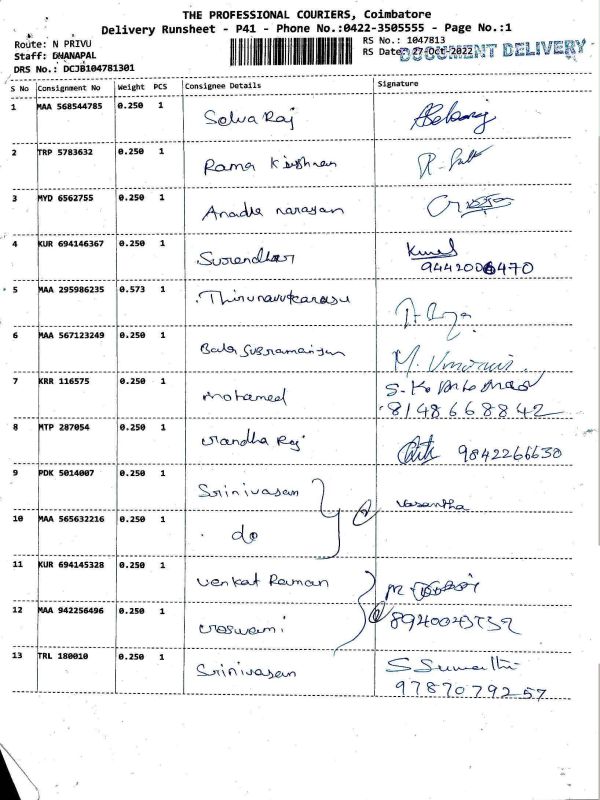 THE PROFESSIONAL COURIERS, Coimbatore
Delivery Runsheet - P41 - Phone No.:0422-3505555 - Page No.:1
Route: N PRIVU
RS No.: 1047813
Staff: DHANAPAL
RS Date: 27-Oct-2022
DOCUMENT DELIVERY
DRS No.: DCJB104781301
S No Consignment No Weight PCS Consignee Details Signature
1 MAA 568544785 0.250 1 Selva Raj
2 TRP 5783632 0.250 1 Rama Krishnan
3 MYD 6562755 0.250 1 narayan
4 KUR 694146367 0.250 1 Surendhar
5 MAA 295986235 0.573 1 Thirunavukarasu
6 MAA 567123249 0.250 1 Bala
7 KRR 116575 0.250 1 mohamed
8148668842
8 MTP 287054 0.250 1 Raj 9842266630
9 PDK 5014007 0.250 1 Srinivasan Vasantha
10 MAA 565632216 0.250 1 do
11 KUR 694145328 0.250 1 Venkat Raman
12 MAA 942256496 0.250 1
13 TRL 180010 0.250 1 Srinivasan S Sumathi
9787079257